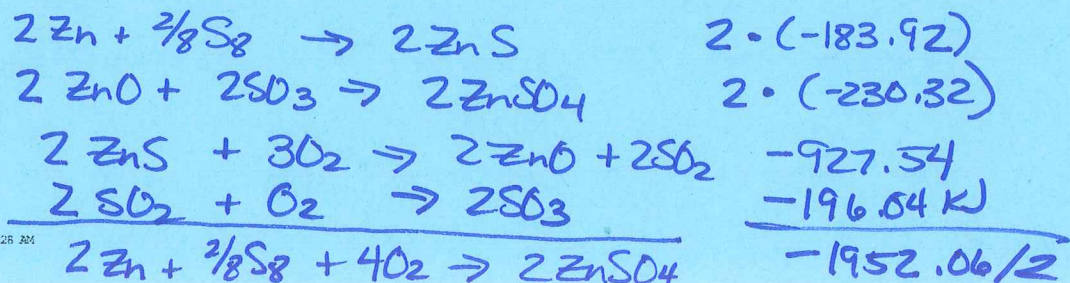 2 Zn + 2/8 S8 → 2 ZnS 2 • (-183.92)
2 ZnO + 2SO3 → 2 ZnSO4 2 • (-230.32)
2 ZnS + 3O2 → 2 ZnO + 2SO2 -927.54
2 SO2 + O2 → 2SO3 -196.04 KJ
28 AM
2 Zn + 2/8 S8 + 4O2 → 2 ZnSO4 -1952.06/2